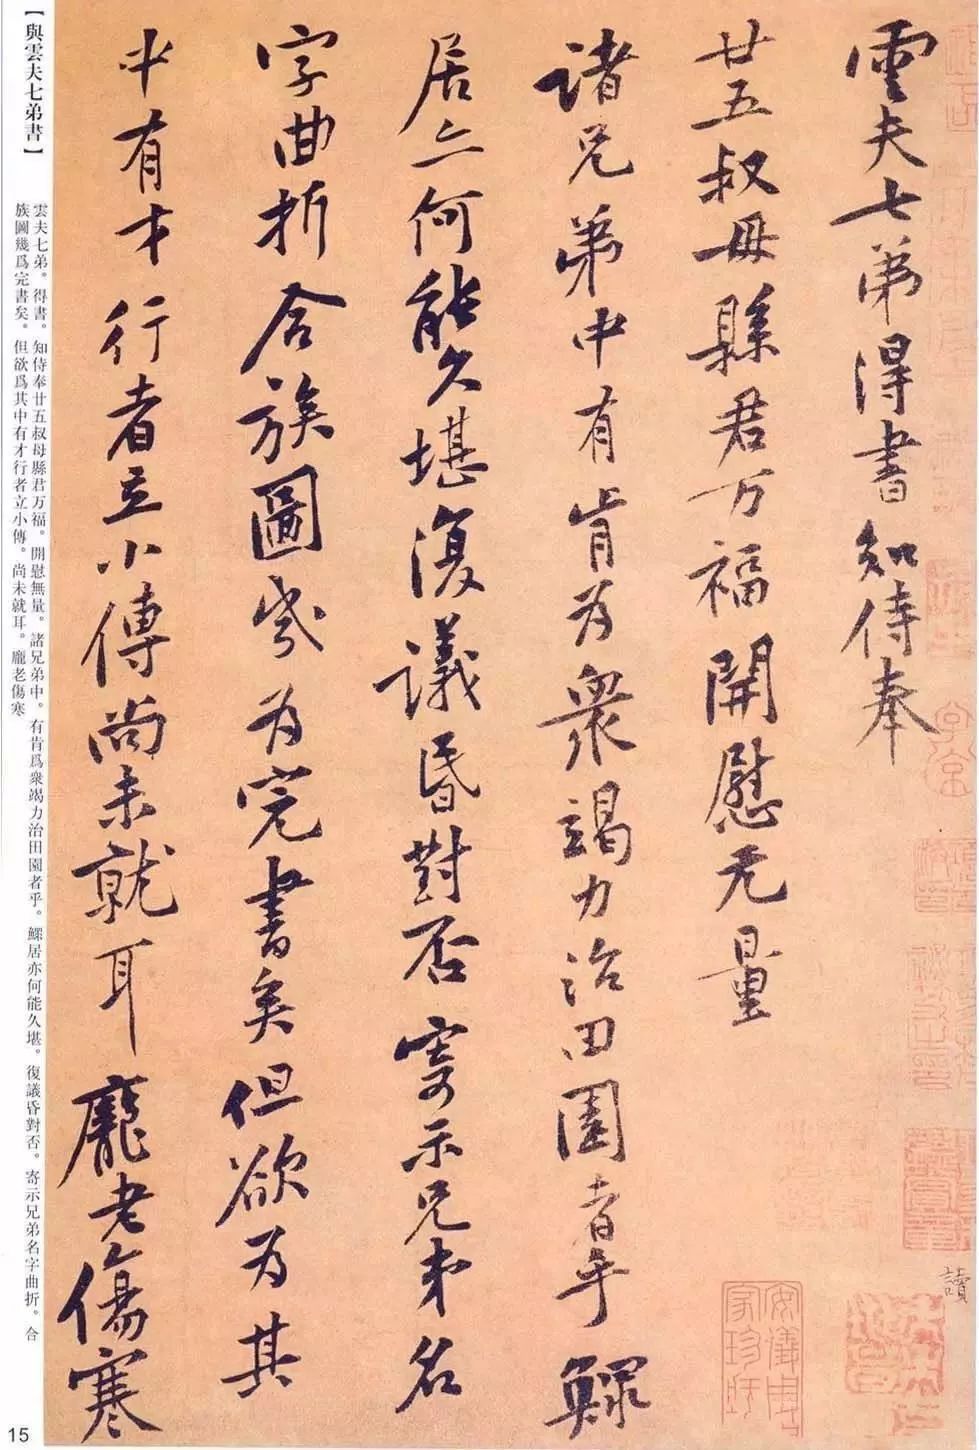 雲夫七弟得書知侍奉
廿五叔母縣君万福開慰无量
諸兄弟中有肯为衆竭力治田園者乎鰥
居亦何能久堪復議昏對否寄示兄弟名
字曲折合族圖幾为完書矣但欲为其
中有才行者立小傳尚未就耳龐老傷寒
讀
安儀周
家珍藏
【與雲夫七弟書】
雲夫七弟。得書。知侍奉廿五叔母縣君万福。開慰無量。諸兄弟中。有肯爲衆竭力治田園者乎。鰥居亦何能久堪。復議昏對否。寄示兄弟名字曲折。合
族圖幾爲完書矣。但欲爲其中有才行者立小傳。尚未就耳。龐老傷寒
15